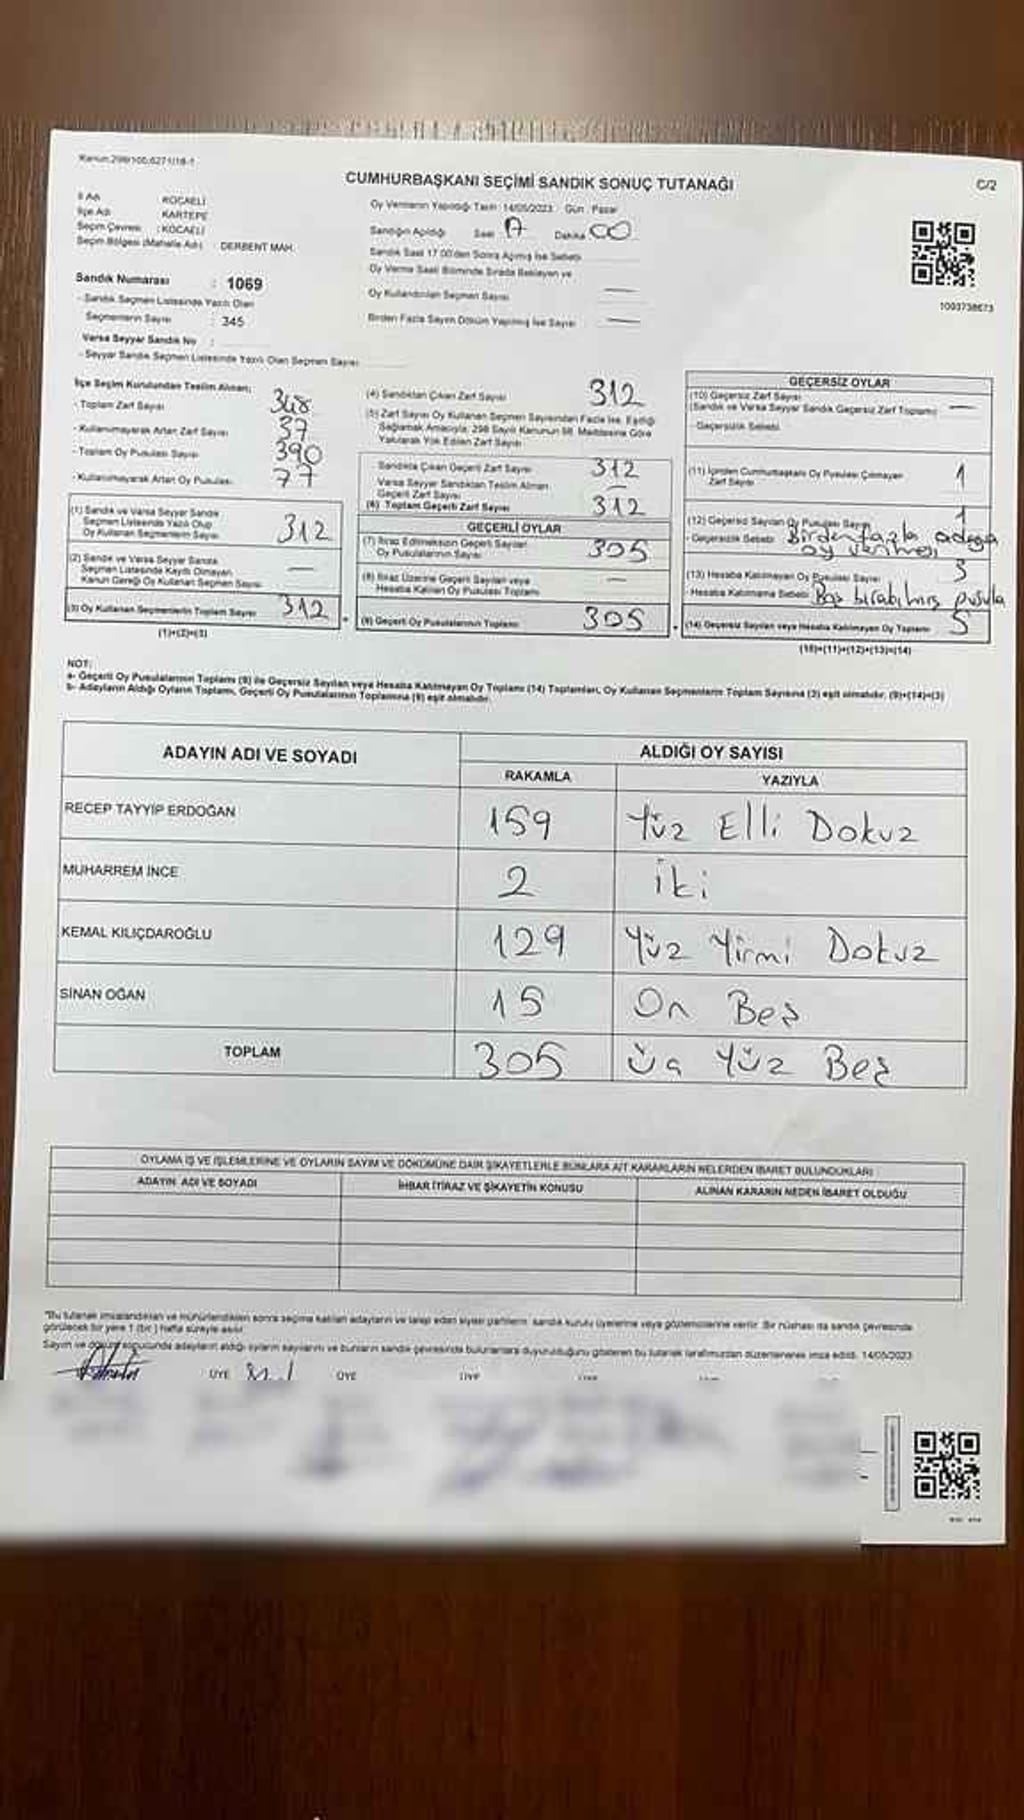 Kanun:298/105,6271/18-1
CUMHURBAŞKANI SEÇİMİ SANDIK SONUÇ TUTANAĞI
C/2
İl Adı KOCAELİ
İlçe Adı KARTEPE
Seçim Çevresi : KOCAELİ
Seçim Bölgesi (Mahalle Adı) : DERBENT MAH.
Sandık Numarası : 1069
- Sandık Seçmen Listesinde Yazılı Olan
Seçmenlerin Sayısı : 345
Varsa Seyyar Sandık No :
- Seyyar Sandık Seçmen Listesinde Yazılı Olan Seçmen Sayısı
Oy Vermenin Yapıldığı Tarih: 14/05/2023 Gün : Pazar
Sandığın Açıldığı Saat 17 Dakika 00
Sandık Saat 17.00'den Sonra Açılmış İse Sebebi
Oy Verme Saati Bitiminde Sırada Bekleyen ve
Oy Kullandırılan Seçmen Sayısı —
Birden Fazla Sayım Döküm Yapılmış İse Sayısı —
1093738673
İlçe Seçim Kurulundan Teslim Alınan;
- Toplam Zarf Sayısı 348
- Kullanılmayarak Artan Zarf Sayısı 37
- Toplam Oy Pusulası Sayısı 390
- Kullanılmayarak Artan Oy Pusulası 77
(1) Sandık ve Varsa Seyyar Sandık
Seçmen Listesinde Yazılı Olup
Oy Kullanan Seçmenlerin Sayısı 312
(2) Sandık ve Varsa Seyyar Sandık
Seçmen Listesinde Kayıtlı Olmayan,
Kanun Gereği Oy Kullanan Seçmen Sayısı —
(3) Oy Kullanan Seçmenlerin Toplam Sayısı 312
(1)+(2)=(3)
(4) Sandıktan Çıkan Zarf Sayısı 312
(5) Zarf Sayısı Oy Kullanan Seçmen Sayısından Fazla İse, Eşitliği
Sağlamak Amacıyla, 298 Sayılı Kanunun 98. Maddesine Göre
Yakılarak Yok Edilen Zarf Sayısı
Sandıkta Çıkan Geçerli Zarf Sayısı 312
Varsa Seyyar Sandıktan Teslim Alınan
Geçerli Zarf Sayısı —
(6) Toplam Geçerli Zarf Sayısı 312
GEÇERLİ OYLAR
(7) İtiraz Edilmeksizin Geçerli Sayılan
Oy Pusulalarının Sayısı 305
(8) İtiraz Üzerine Geçerli Sayılan veya
Hesaba Katılan Oy Pusulası Toplamı —
(9) Geçerli Oy Pusulalarının Toplamı 305
GEÇERSİZ OYLAR
(10) Geçersiz Zarf Sayısı
(Sandık ve Varsa Seyyar Sandık Geçersiz Zarf Toplamı) —
- Geçersizlik Sebebi
(11) İçinden Cumhurbaşkanı Oy Pusulası Çıkmayan
Zarf Sayısı 1
(12) Geçersiz Sayılan Oy Pusulası Sayısı 1
- Geçersizlik Sebebi Birden fazla adaya
oy verilmesi
(13) Hesaba Katılmayan Oy Pusulası Sayısı 3
- Hesaba Katılmama Sebebi Boş bırakılmış pusula
(14) Geçersiz Sayılan veya Hesaba Katılmayan Oy Toplamı 5
(10)+(11)+(12)+(13)=(14)
NOT:
a- Geçerli Oy Pusulalarının Toplamı (9) ile Geçersiz Sayılan veya Hesaba Katılmayan Oy Toplamı (14) Toplamları, Oy Kullanan Seçmenlerin Toplam Sayısına (3) eşit olmalıdır. (9)+(14)=(3)
b- Adayların Aldığı Oyların Toplamı, Geçerli Oy Pusulalarının Toplamına (9) eşit olmalıdır.
ADAYIN ADI VE SOYADI ALDIĞI OY SAYISI
RAKAMLA YAZIYLA
RECEP TAYYİP ERDOĞAN 159 Yüz Elli Dokuz
MUHARREM İNCE 2 İki
KEMAL KILIÇDAROĞLU 129 Yüz Yirmi Dokuz
SİNAN OĞAN 15 On Beş
TOPLAM 305 Üç Yüz Beş
OYLAMA İŞ VE İŞLEMLERİNE VE OYLARIN SAYIM VE DÖKÜMÜNE DAİR ŞİKAYETLERLE BUNLARA AİT KARARLARIN NELERDEN İBARET BULUNDUKLARI
ADAYIN ADI VE SOYADI İHBAR İTİRAZ VE ŞİKAYETİN KONUSU ALINAN KARARIN NEDEN İBARET OLDUĞU
"Bu tutanak imzalandıktan ve mühürlendikten sonra seçime katılan adayların ve talep eden siyasi partilerin, sandık kurulu üyelerine veya gözlemcilerine verilir. Bir nüshası da sandık çevresinde
görülecek bir yere 1 (bir) hafta süreyle asılır.
Sayım ve döküm sonucunda adayların aldığı oyların sayılarını ve bunların sandık çevresinde bulunanlara duyurulduğunu gösteren bu tutanak tarafımızdan düzenlenerek imza edildi. 14/05/2023
ÜYE ÜYE ÜYE